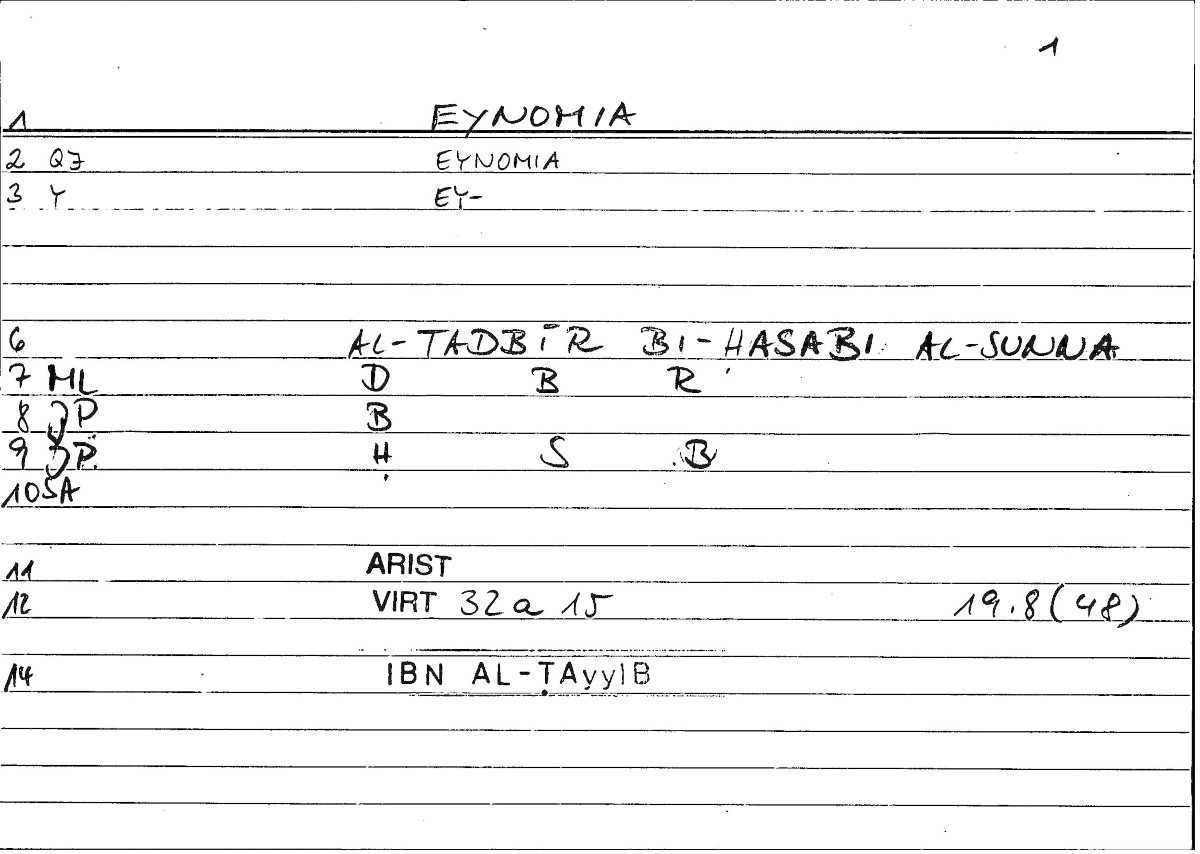 1
1 EYNOMIA
2 QZ EYNOMIA
3 Y EY-
6 AL-TADBĪR BI-ḤASABI AL-SUNNA
7 ML D B R
8 JP B
9 JP Ḥ S B
10 SA
11 ARIST
12 VIRT 32 a 15 19.8 (48)
14 IBN AL-ṬAyyIB